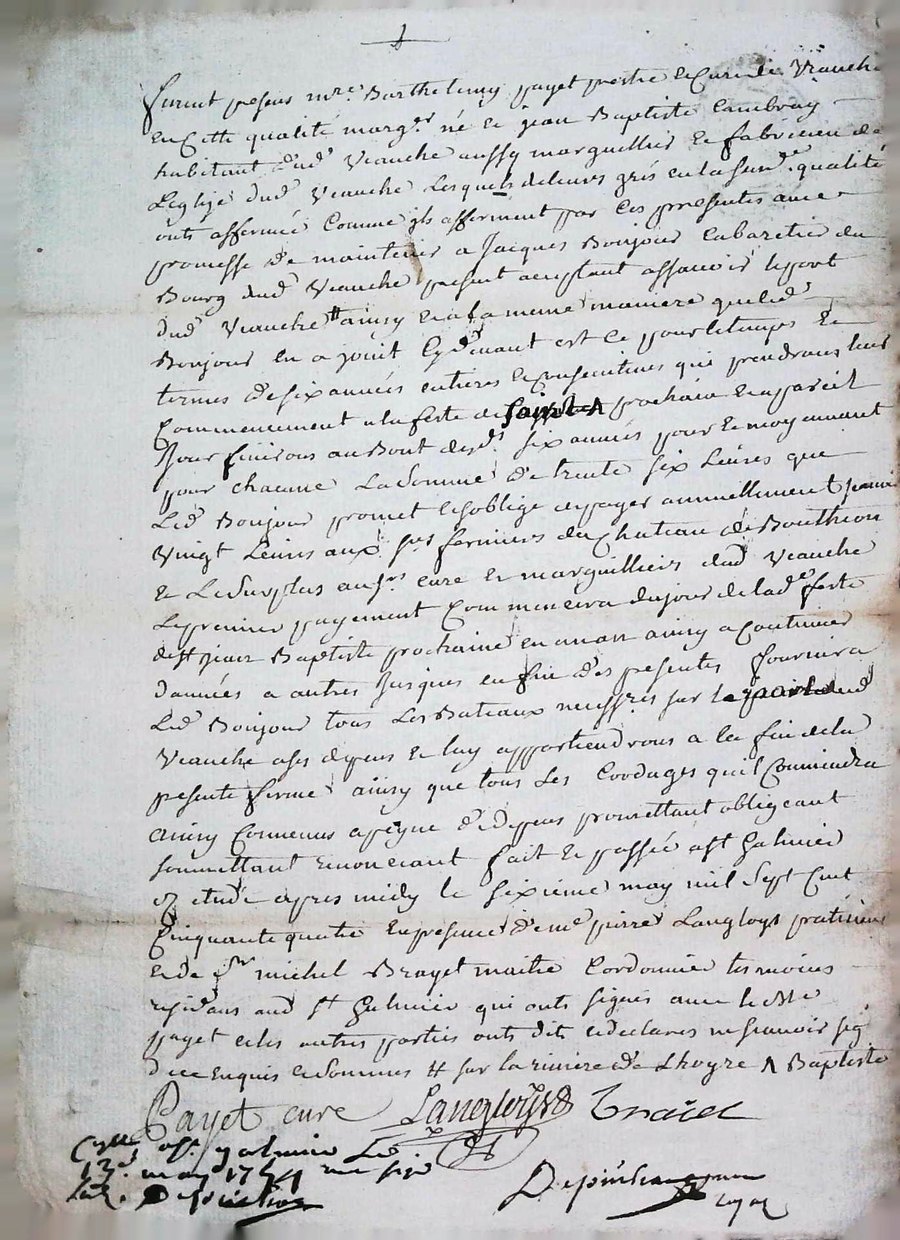 furent presens mre Barthelemy payet prestre et Curé de Veauche
en Cette qualité marg.r né et jean Baptiste Cambray
habitant dud Veauche aussy marguillier et fabricien de
Leglize dud Veauche Lesquels de leurs grés en lasusde qualité
onts affermé Comme ils afferment par Ces presentes avec
promesse de maintenir a Jacques Bonjour Cabaretier du
Bourg dud Veauche present acceptant assavoir le port
dud Veauche # ainsy et a la meme maniere que led
Bonjour en a jouit Cydevant est ce pour le temps et
termes de six années entieres et Consecutives qui prendrons leur
Commencement a la feste de saint ^ prochain et a pareil
Jour finirons au Bout desds six années pour et moyennant
pour chacune La Somme de trente six Livres que
Led Bonjour promet et soblige de payer annuellement
Vingt Livres aux srs fermiers du Chateau de Bouthéon
et Le Surplus aux srs curé et marguilliers dud Veauche
Le premier payement Commencera du jour de lade feste
de st jean Baptiste prochaine en un an ainsy a Continuer
dannées a autres Jusques en fin des presentes fournira
Led Bonjour tous Les Bateaux necessres sur le port dud
Veauche a ses depens et luy appartiendrons a la fin de la
presente ferme ainsy que tous Les Cordages quil Conviendra
ainsy Convenus a peyne de depens promettant obligeant
soumettant renonceant fait et passé a st Galmier
et etude apres midy le sixieme may mil Sept Cent
Cinquante quatre En presence de me pierre Langloys praticien
et de sr michel Brayet maitre Cordonnier temoins
residans aud st Galmier qui onts signés avec led Mre
payet et les autres parties onts dit et declarés ne scavoir sig
de ce Enquis et sommés # sur la riviere de Lhoyre ^ Baptiste
Payet curé Langloys Braiet
Cllé a st galmier Le
13e may 1754